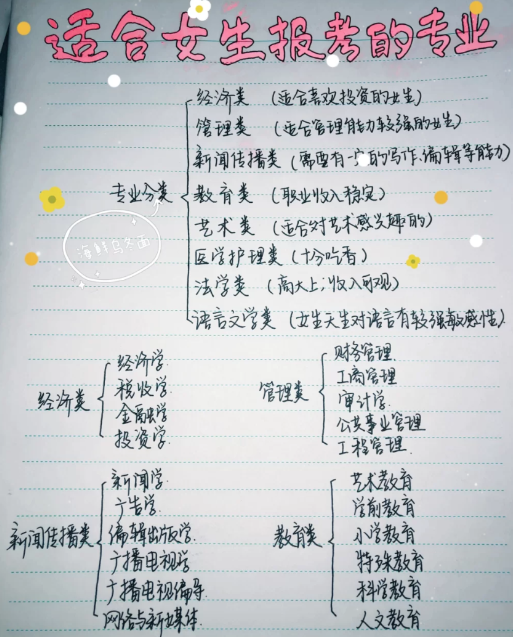 适合女生报考的专业
专业分类
经济类 (适合喜欢投资的女生)
管理类 (适合管理能力较强的女生)
新闻传播类 (需要有一定的写作、编辑等能力)
教育类 (职业收入稳定)
艺术类 (适合对艺术感兴趣的)
医学护理类 (十分吃香)
法学类 (高大上,收入可观)
语言文学类 (女生天生对语言有较强敏感性)
海鲜乌冬面
经济类
经济学
税收学
金融学
投资学
管理类
财务管理
工商管理
审计学
公共事业管理
工程管理
新闻传播类
新闻学
广告学
编辑出版学
广播电视学
广播电视编导
网络与新媒体
教育类
艺术教育
学前教育
小学教育
特殊教育
科学教育
人文教育